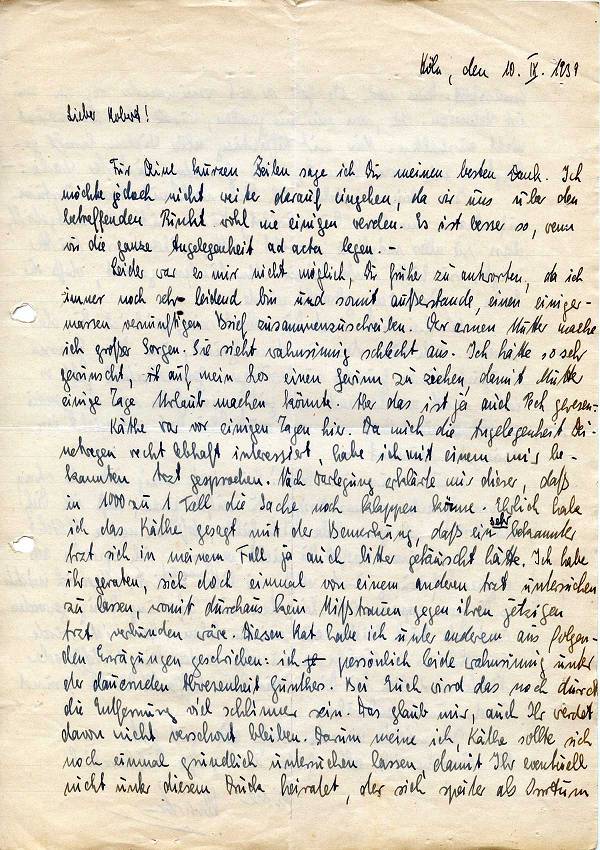 Köln, den 10. IX. 1939
Lieber Robert!
Für Deine kurzen Zeilen sage ich Dir meinen besten Dank. Ich
möchte jedoch nicht weiter darauf eingehen, da wir uns über den
betreffenden Punkt wohl nie einigen werden. Es ist besser so, wenn
wir die ganze Angelegenheit ad acta legen. –
Leider war es mir nicht möglich, Dir früher zu antworten, da ich
immer noch sehr leidend bin und somit außerstande, einen einiger-
massen vernünftigen Brief zusammenzuschreiben. Der armen Mutter mache
ich großer Sorgen. Sie sieht wahnsinnig schlecht aus. Ich hätte so sehr
gewünscht, auf mein Los einen Gewinn zu ziehen, damit Mutter
einige Tage Urlaub machen könnte. Aber das ist ja auch Pech gewesen.
Käthe war vor einigen Tagen hier. Da mich die Angelegenheit Dei-
netwegen recht lebhaft interessiert, habe ich mit einem mir be-
kannten Arzt gesprochen. Nach Darlegung erklärte mir dieser, daß
in 1000 zu 1 Fall die Sache noch klappen könne. Ehrlich habe
ich das Käthe gesagt mit der Bemerkung, daß ein sehr bekannter
Arzt sich in meinem Fall ja auch bitter getäuscht hätte. Ich habe
ihr geraten, sich doch einmal von einem anderen Arzt untersuchen
zu lassen, womit durchaus kein Mißtrauen gegen ihren jetzigen
Arzt verbunden wäre. Diesen Rat habe ich unter anderem aus folgen-
den Erwägungen geschrieben: ich persönlich leide wahnsinnig unter
der dauernden Abwesenheit Günthers. Bei Euch wird das noch durch
die Entfernung viel schlimmer sein. Das glaub mir, auch Ihr werdet
davon nicht verschont bleiben. Darum meine ich, Käthe sollte sich
noch einmal gründlich untersuchen lassen, damit Ihr eventuell
nicht unter diesem Druck heiratet, der sich später als Irrtum